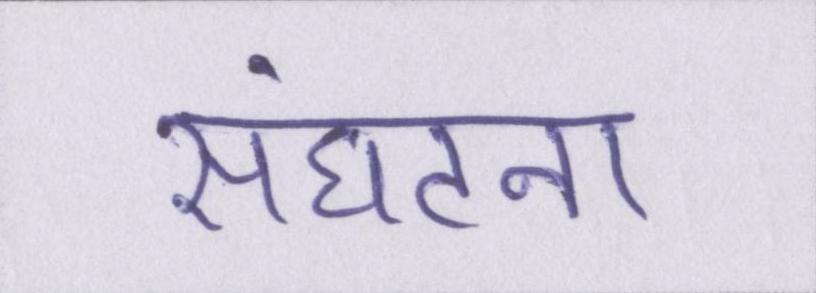 संघटना